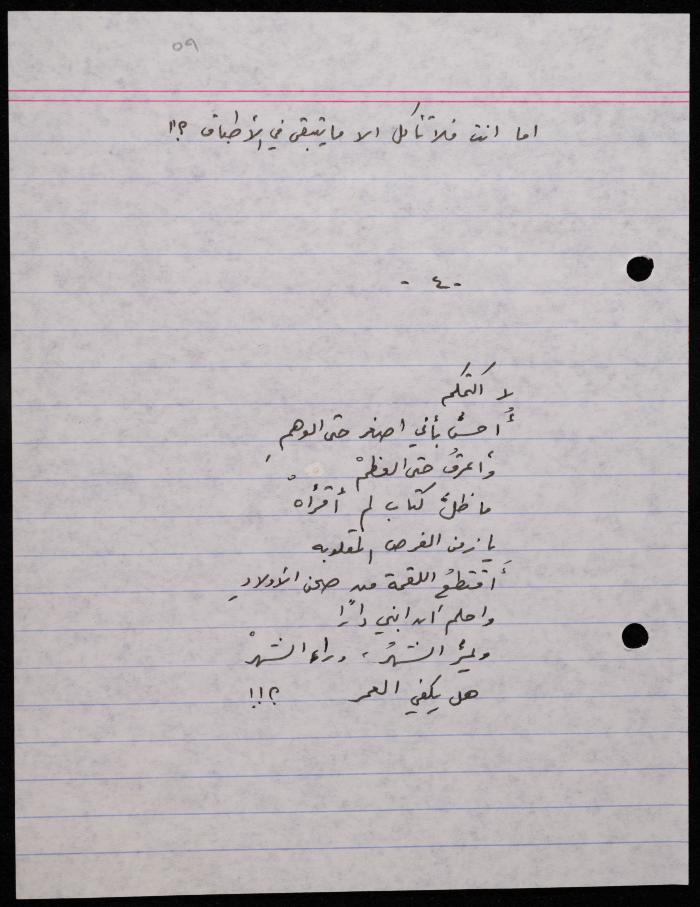 ٥٩
اما انت فلا تأكل الا ما يتبقى في الأطباق ؟!!
- ٤ -
لا اتكلم
أُحسُّ بأني اصغر حتى الوهم
وأعرقُ حتى العظمْ
ما ظلَّ كتاب لم أقرأهْ
يا زمن الفرص المقلوبه
أَقتطعُ اللقمة من صحن الأولادِ
واحلم أن ابني دارًا
ويمرُّ الشهرُ ، وراء الشهرْ
هل يكفي العمر ؟!!